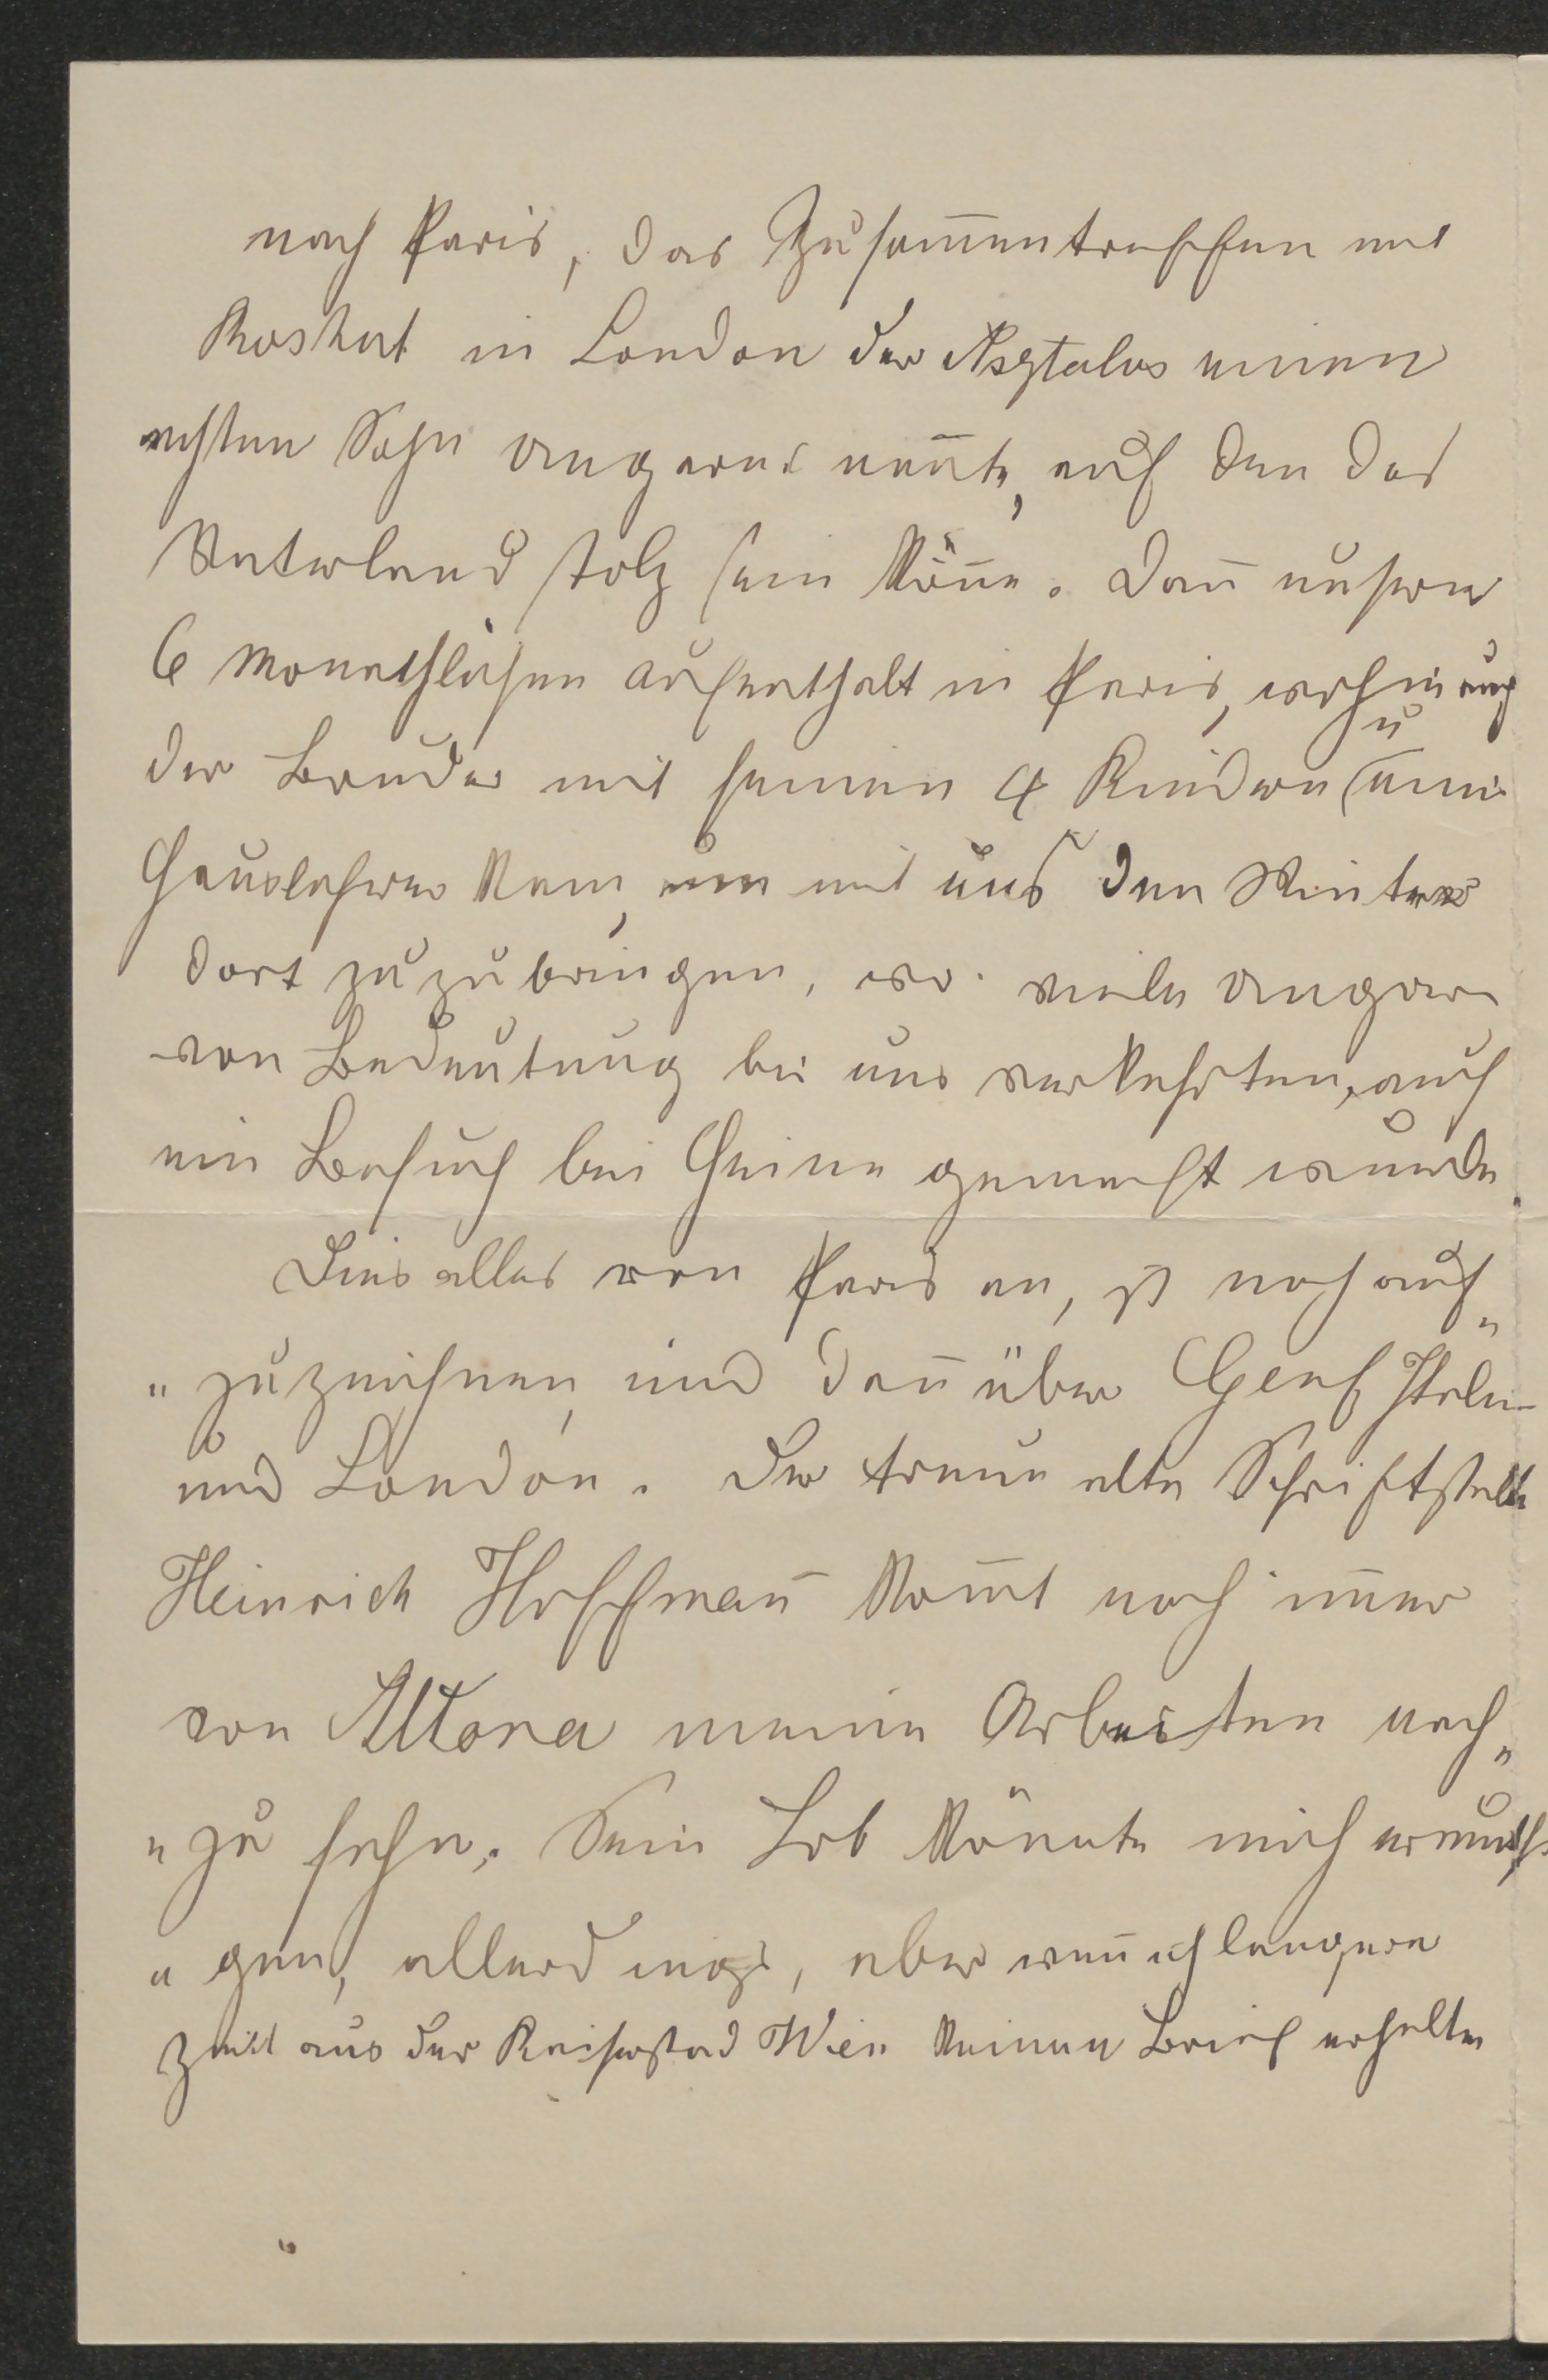 nach Paris, das Zusam̄entreffen mit
Koshut in London der Asztalos einen
echten Sohn Ungarns nen̄te, auf den das
Vaterland stolz sein kön̄e. Dan̄ unsern
6 monathlichen Aufenthalt in Paris, wohin auch
der Bruder mit seinen 4 Kindern u einen
Hauslehrer kam, um mit uns den Winter
dort zuzubringen, wo viele Ungarn
von Bedeutung bei uns verkehrten, auch
ein Besuch bei Heine gemacht wurde.
Dies alles von Paris an, ist noch auf„
„zuzeichnen, und dan̄ über Genf Italien
und London. Der treue alte Schriftstelle
Heinrich Hoffman̄ kom̄t noch im̄er
von Altona meine Arbeiten nach„
„zu sehn. Sein Lob könnte mich ermuthi
„gen, allerdings, aber wen̄ ich längere
Zeit aus der Kaiserstad Wien keinen Brief erhalte